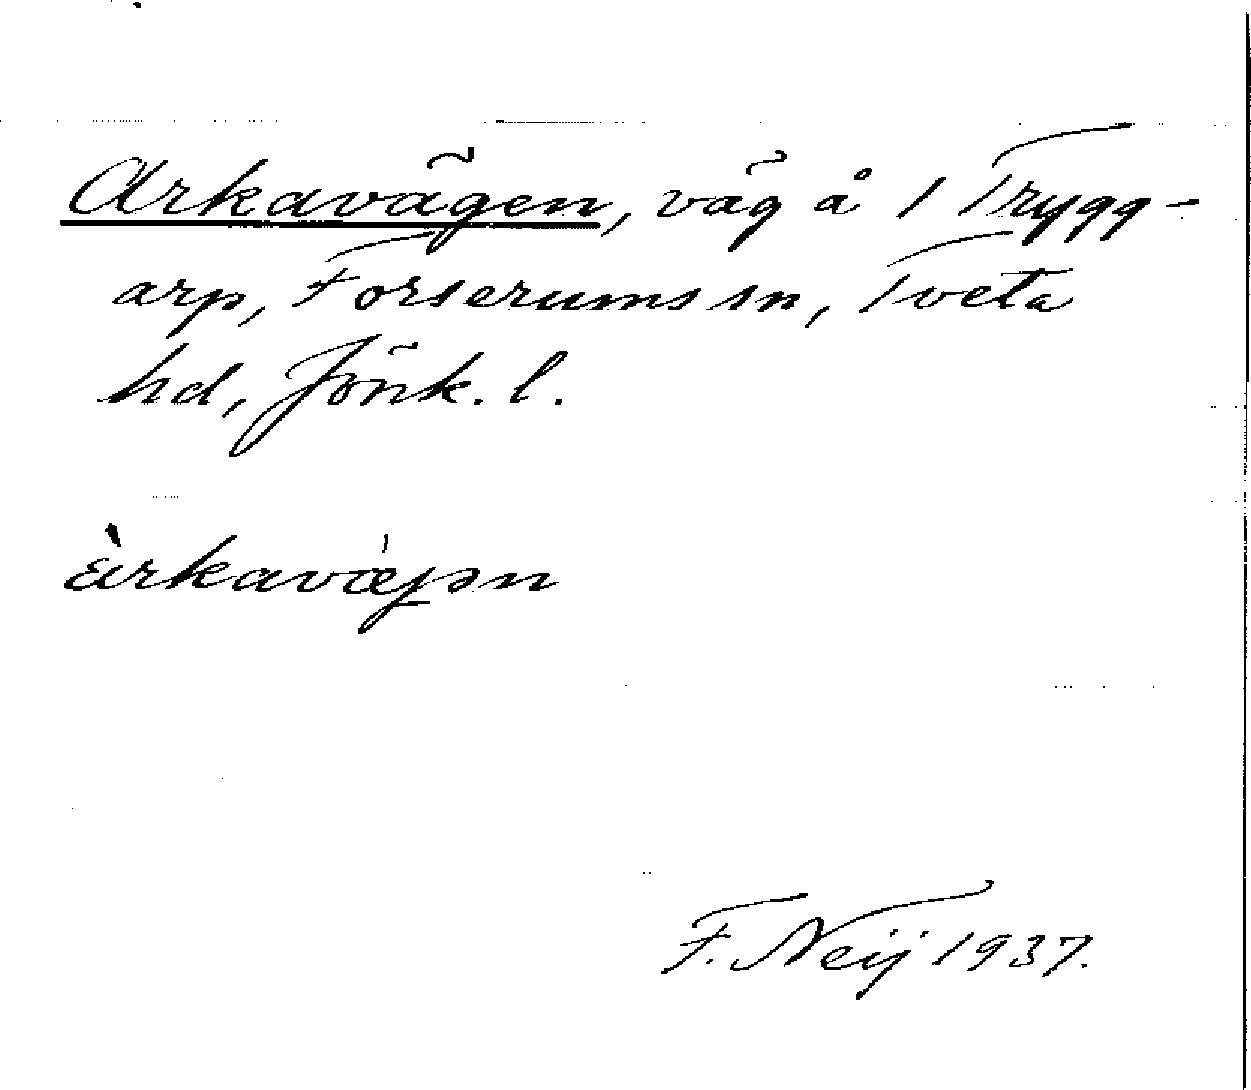 Arkavägen, väg å 1 Trygg-
arp, Forserums sn, Tveta
hd, Jönk. l.
F. Neij 1937.